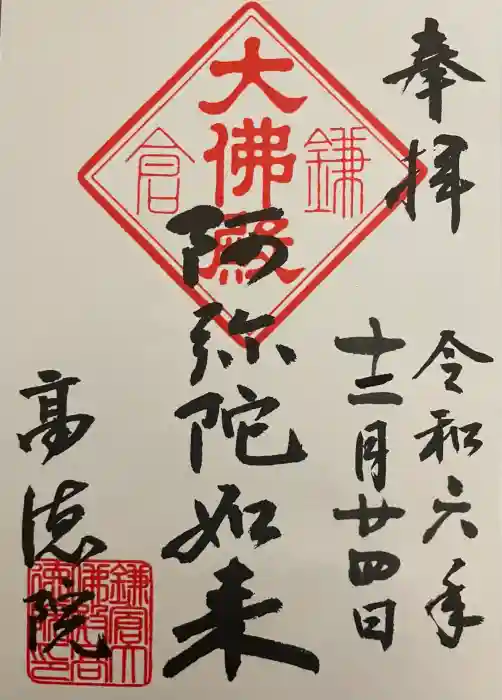 奉拝
令和六年
十二月廿四日
鎌倉
大佛殿
阿弥陀如来
高徳院